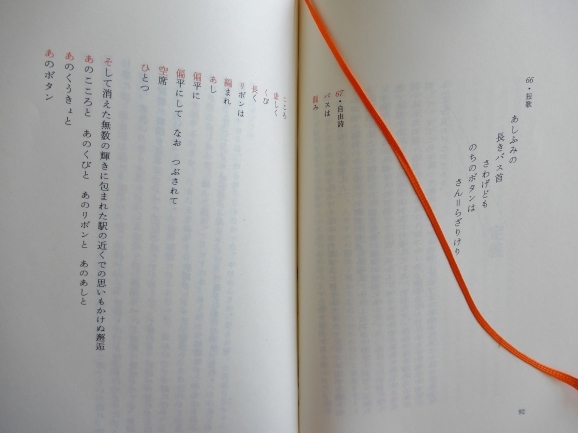 66・短歌
あしふみの
長きバス首
さわげども
のちのボタンは
さん=らざりけり
67・自由詩
バスは
混み
こころ
虚しく
くび
長く
リボンは
編まれ
あし
偏平に
偏平にして なお つぶされて
空席
ひとつ
そして消えた無数の輝きに包まれた駅の近くでの思いもかけぬ邂逅
あのこころと あのくびと あのリボンと あのあしと
あのくうきょと
あのボタン